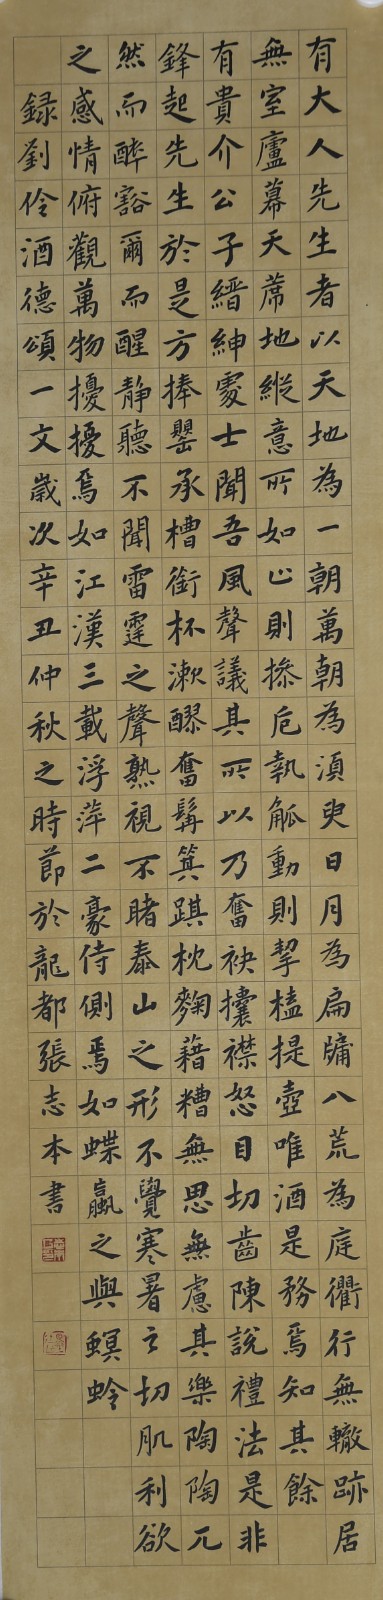 有大人先生者以天地為一朝萬朝為須臾日月為扃牖八荒為庭衢行無轍跡居
無室廬幕天蓆地縱意所如止則操卮執觚動則挈榼提壺唯酒是務焉知其餘
有貴介公子縉紳處士聞吾風聲議其所以乃奮袂攘襟怒目切齒陳說禮法是非
鋒起先生於是方捧罌承槽銜杯漱醪奮髯箕踑枕麴藉糟無思無慮其樂陶陶兀
然而醉豁爾而醒静聽不聞雷霆之聲熟視不睹泰山之形不覺寒暑之切肌利欲
之感情俯觀萬物擾擾焉如江漢三載浮萍二豪侍側焉如蝶蠃之與螟蛉
録劉伶酒德頌一文歲次辛丑仲秋之時節於龍都張志本書